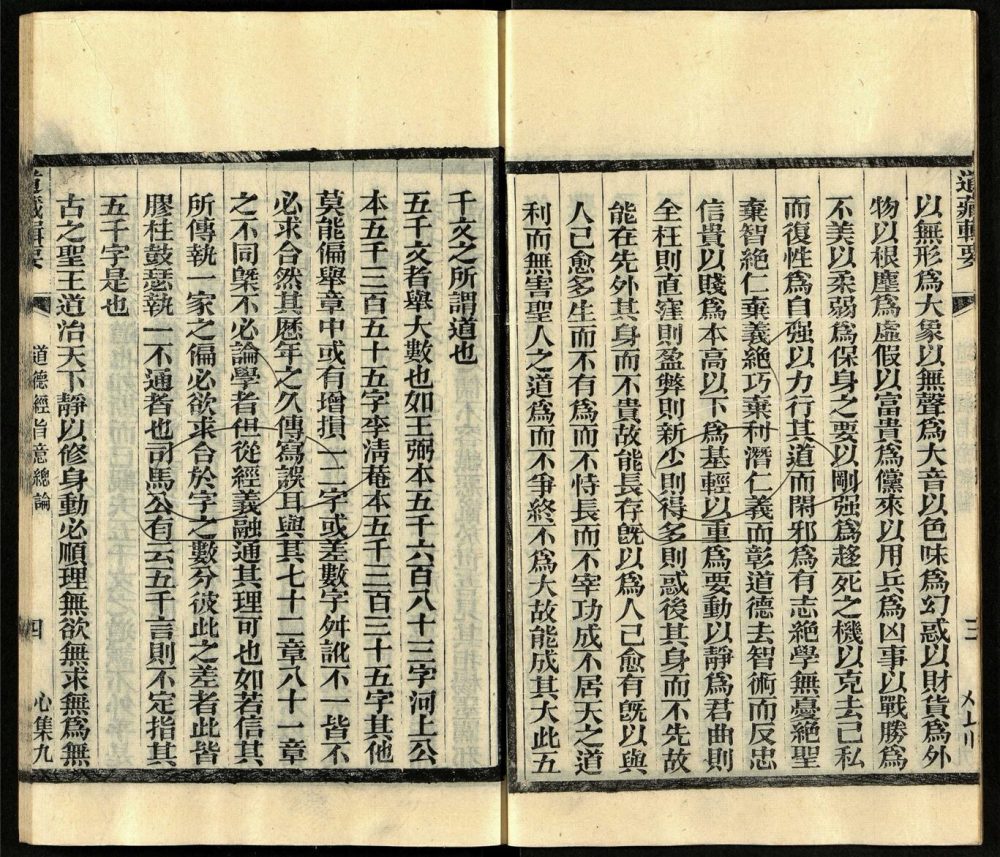 道藏輯要
三
以無形爲大象以無聲爲大音以色味爲幻惑以財貨爲外
物以根塵爲虛假以富貴爲儻來以用兵爲凶事以戰勝爲
不美以柔弱爲保身之要以剛强爲趍死之機以克去己私
而復性爲自强以力行其道而閑邪爲有志絕學無憂絕聖
棄智絕仁棄義絕巧棄利潛仁義而彰道德去智術而反忠
信貴以賤爲本高以下爲基輕以重爲要動以靜爲君曲則
全枉則直窪則盈弊則新少則得多則惑後其身而不先故
能在先外其身而不貴故能長存旣以爲人己愈有旣以與
人己愈多生而不有爲而不恃長而不宰功成不居天之道
利而無害聖人之道爲而不爭終不爲大故能成其大此五
千文之所謂道也
五千文者舉大數也如王弼本五千六百八十三字河上公
本五千三百五十五字李淸菴本五千三百三十五字其他
莫能徧舉章中或有增損一二字或差數字舛訛不一皆不
必求合然其歷年之久傳寫誤耳與其七十二章八十一章
之不同槩不必論學者但從經義融通其理可也如若信其
所傳執一家之偏必欲求合於字之數分彼此之差者此皆
膠柱鼓瑟執一不通者也司馬公有云五千言則不定指其
五千字是也
古之聖王道治天下靜以修身動必順理無欲無求無爲無
道藏輯要
道德經旨意總論
四
心集九